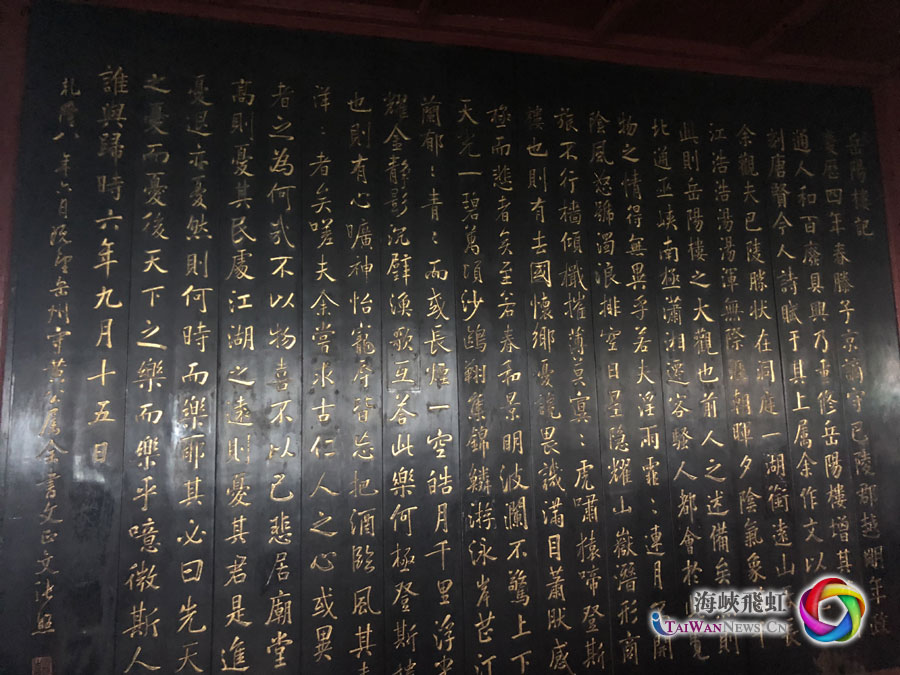 岳陽樓記
慶歷四年春滕子京謫守巴陵郡越明年政
通人和百廢具興乃重修岳陽樓增其
刻唐賢今人詩賦于其上属余作文以
余觀夫巴陵勝狀在洞庭一湖銜遠山
江浩浩湯湯渾無際涯朝暉夕陰氣象
則岳陽樓之大觀也前人之述備矣 則
北通巫峽南極瀟湘遷客騷人都會於 覽
物之情得無異乎若夫淫雨霏：連月不開
陰風怒號濁浪排空日星隱耀山嶽潛形商
旅不行檣傾檝摧薄暮冥：虎嘯猿啼登斯
樓也則有去國懷鄉憂讒畏譏滿目蕭然感
極而悲者矣至若春和景明波瀾不驚上下
天光一碧萬頃沙鷗翔集錦鱗游泳岸芷汀
蘭郁：青：而或長煙一空皓月千里浮光
耀金靜影沉璧漁歌互荅此樂何極登斯樓
也則有心曠神怡寵辱皆忘把酒臨風其喜
洋：者矣嗟夫余嘗求古仁人之心或異
者之為何哉不以物喜不以己悲居廟堂
高則憂其民處江湖之遠則憂其君是進
憂退亦憂然則何時而樂耶其必曰先天
之憂而憂後天下之樂而樂乎噫微斯人
誰與歸時六年九月十五日
乾隆八年六月既望岳州守黃公属余書文正文張照
海峽飛虹
TAIWANNEWS.CN